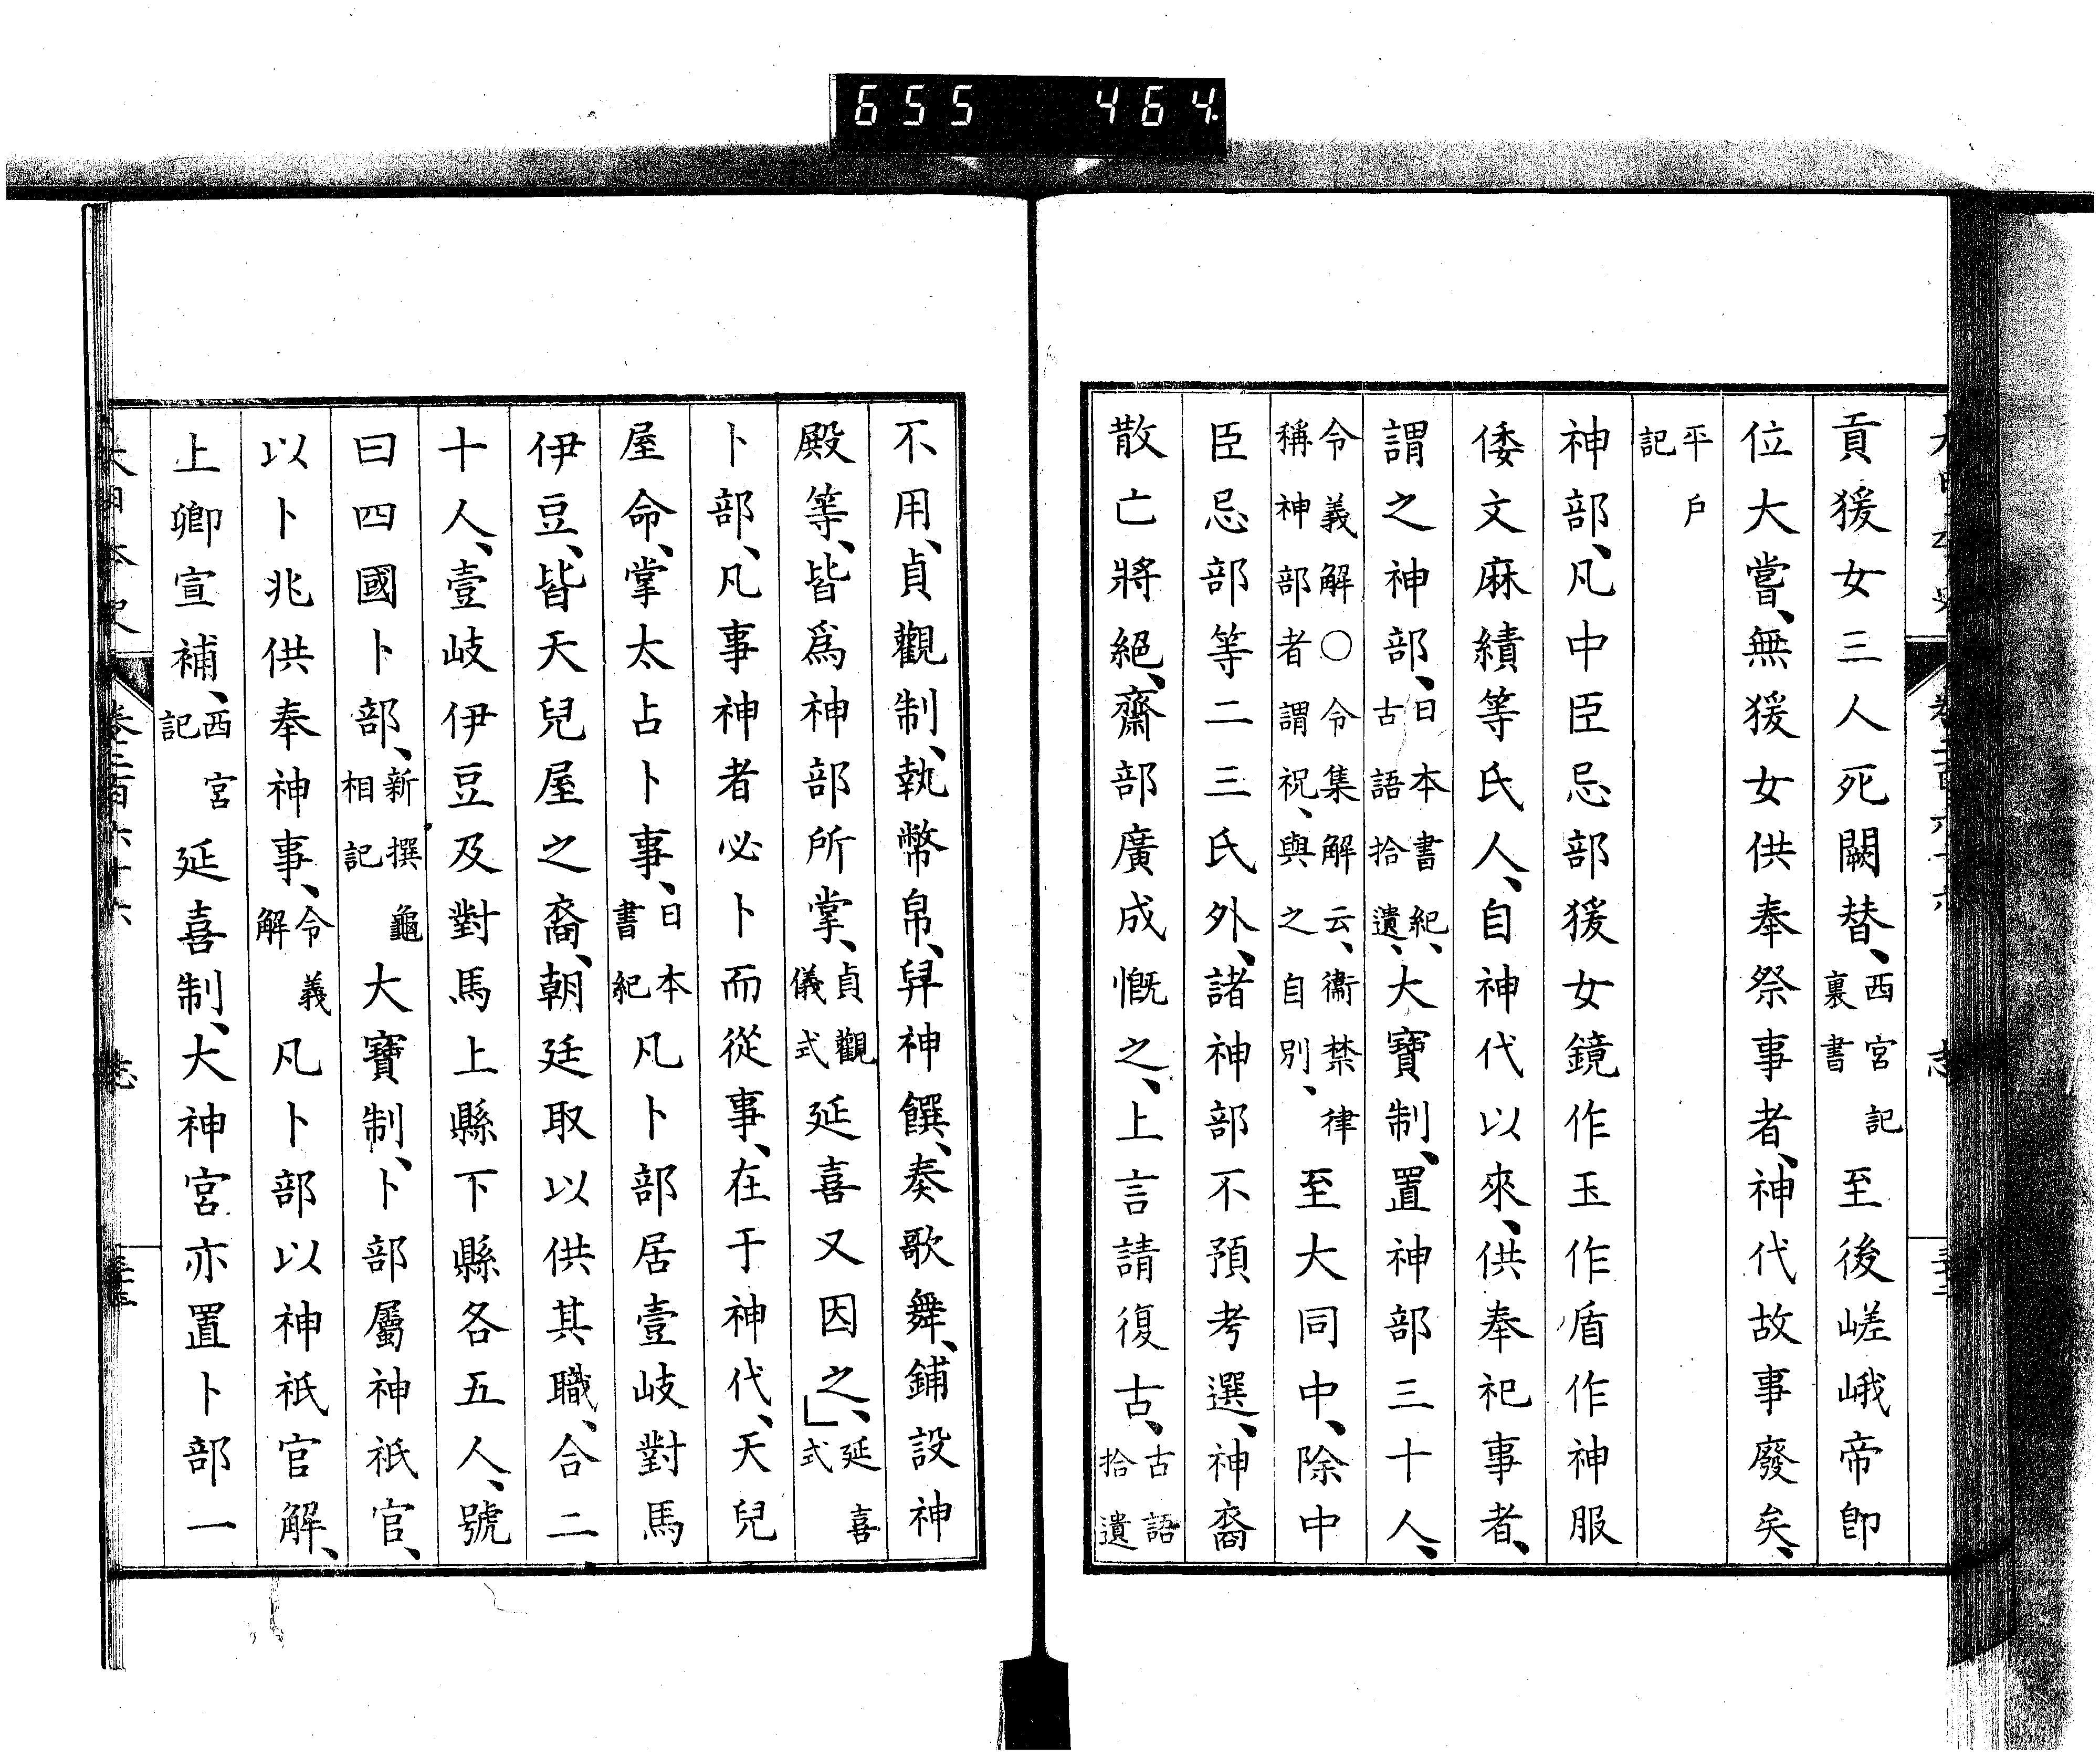 655 464.
貢猨女三人死闕替、西宮記裏書至後嵯峨帝卽
位大嘗、無猨女供奉祭事者、神代故事廢矣、
平戶記
神部、凡中臣忌部猨女鏡作玉作盾作神服
倭文麻績等氏人、自神代以來、供奉祀事者、
謂之神部、日本書紀、古語拾遺、大寶制、置神部三十人、
令義解○令集解云、衞禁律稱神部者謂祝、與之自別、至大同中、除中
臣忌部等二三氏外、諸神部不預考選、神裔
散亡將絕、齋部廣成慨之、上言請復古、古語拾遺
不用、貞觀制、執幣帛、舁神饌、奏歌舞、鋪設神
殿等、皆爲神部所掌、貞觀儀式延喜又因之、」延喜式
卜部、凡事神者必卜而從事、在于神代、天兒
屋命、掌太占卜事、日本書紀凡卜部居壹岐對馬
伊豆、皆天兒屋之裔、朝廷取以供其職、合二
十人、壹岐伊豆及對馬上縣下縣各五人、號
曰四國卜部、新撰龜相記大寶制、卜部屬神祇官、
以卜兆供奉神事、令義解凡卜部以神祇官解、
上卿宣補、西宮記延喜制、大神宮亦置卜部一
大日本史 卷二百六十六 志